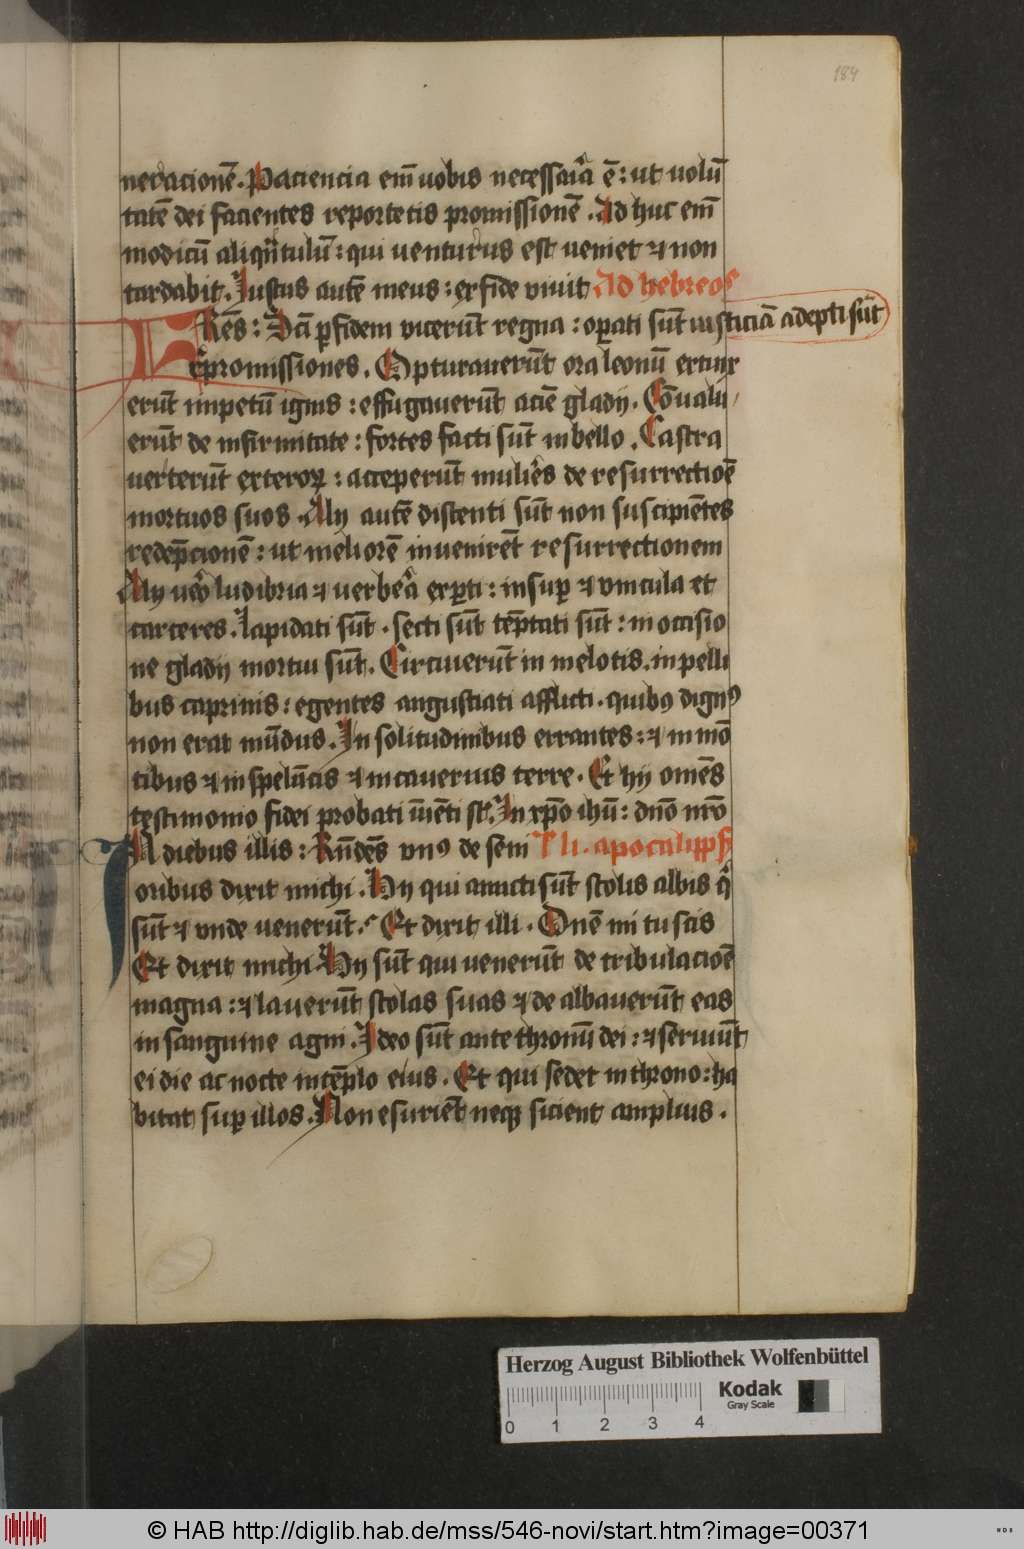 184
neracionē. Paciencia em̄ uobis necessar̄ia ē: ut uolū
tatē dei facientes reportetis promissionē. Ad huc em̄
modicū aliqn̄tulū: qui venturus est ueniet ⁊ non
tardabit. Justus autē meus: ex fide viuit Ad hebreos
FRēs: Sc̄i ꝑ fidem vicerūt regna: oꝑati sūt iusticiā adepti sūt
rep̄romissiones. Opturauerūt ora leonū extinx
erūt impetū ignis: effugauerūt aciē gladij. Cōualu
erūt de infirmitate: fortes facti sūt in bello. Castra
uerterūt exteroꝝ: acceperūt mulier̄s de resurrectioē
mortuos suos. Alij autē distenti sūt non suscipiētes
redēpcionē: ut meliorē inuenirēt resurrectionem
Alij uero ludibria ⁊ uerbera exꝑti: insuꝑ ⁊ vincula et
carceres. lapidati sūt. secti sūt tēptati sūt: in occisio
ne gladij mortui sūt. Circuierūt in melotis. in pelli
bus caprinis: egentes angustiati afflicti. quibꝰ dignꝰ
non erat mūdus. In solitudinibus errantes: ⁊ in mō
tibus ⁊ in spelūcis ⁊ in cauernis terre. Et hij omēs
testimonio fidei probati īuēti st̄. In xp̄o ihū: dn̄o nr̄o
IN diebus illis: Rn̄dēs vnꝰ de seni Tli. apocalipps
oribus dixit michi. Hij qui amicti sūt stolis albis q̄
sūt ⁊ vnde uenerūt. Et dixit illi. Dn̄e mi tu scis
Et dixit michi Hij sūt qui uenerūt de tribulacioē
magna: ⁊ lauerūt stolas suas ⁊ de albauerūt eas
in sanguine agni. Ideo sūt ante thronū dei: ⁊ seruiūt
ei die ac nocte in tēplo eius. Et qui sedet in throno: ha
bitat suꝑ illos. Non esuriēt neqꝫ sicient amplius.
Herzog August Bibliothek Wolfenbüttel
Kodak
Gray Scale
0 1 2 3 4
© HAB http://diglib.hab.de/mss/546-novi/start.htm?image=00371